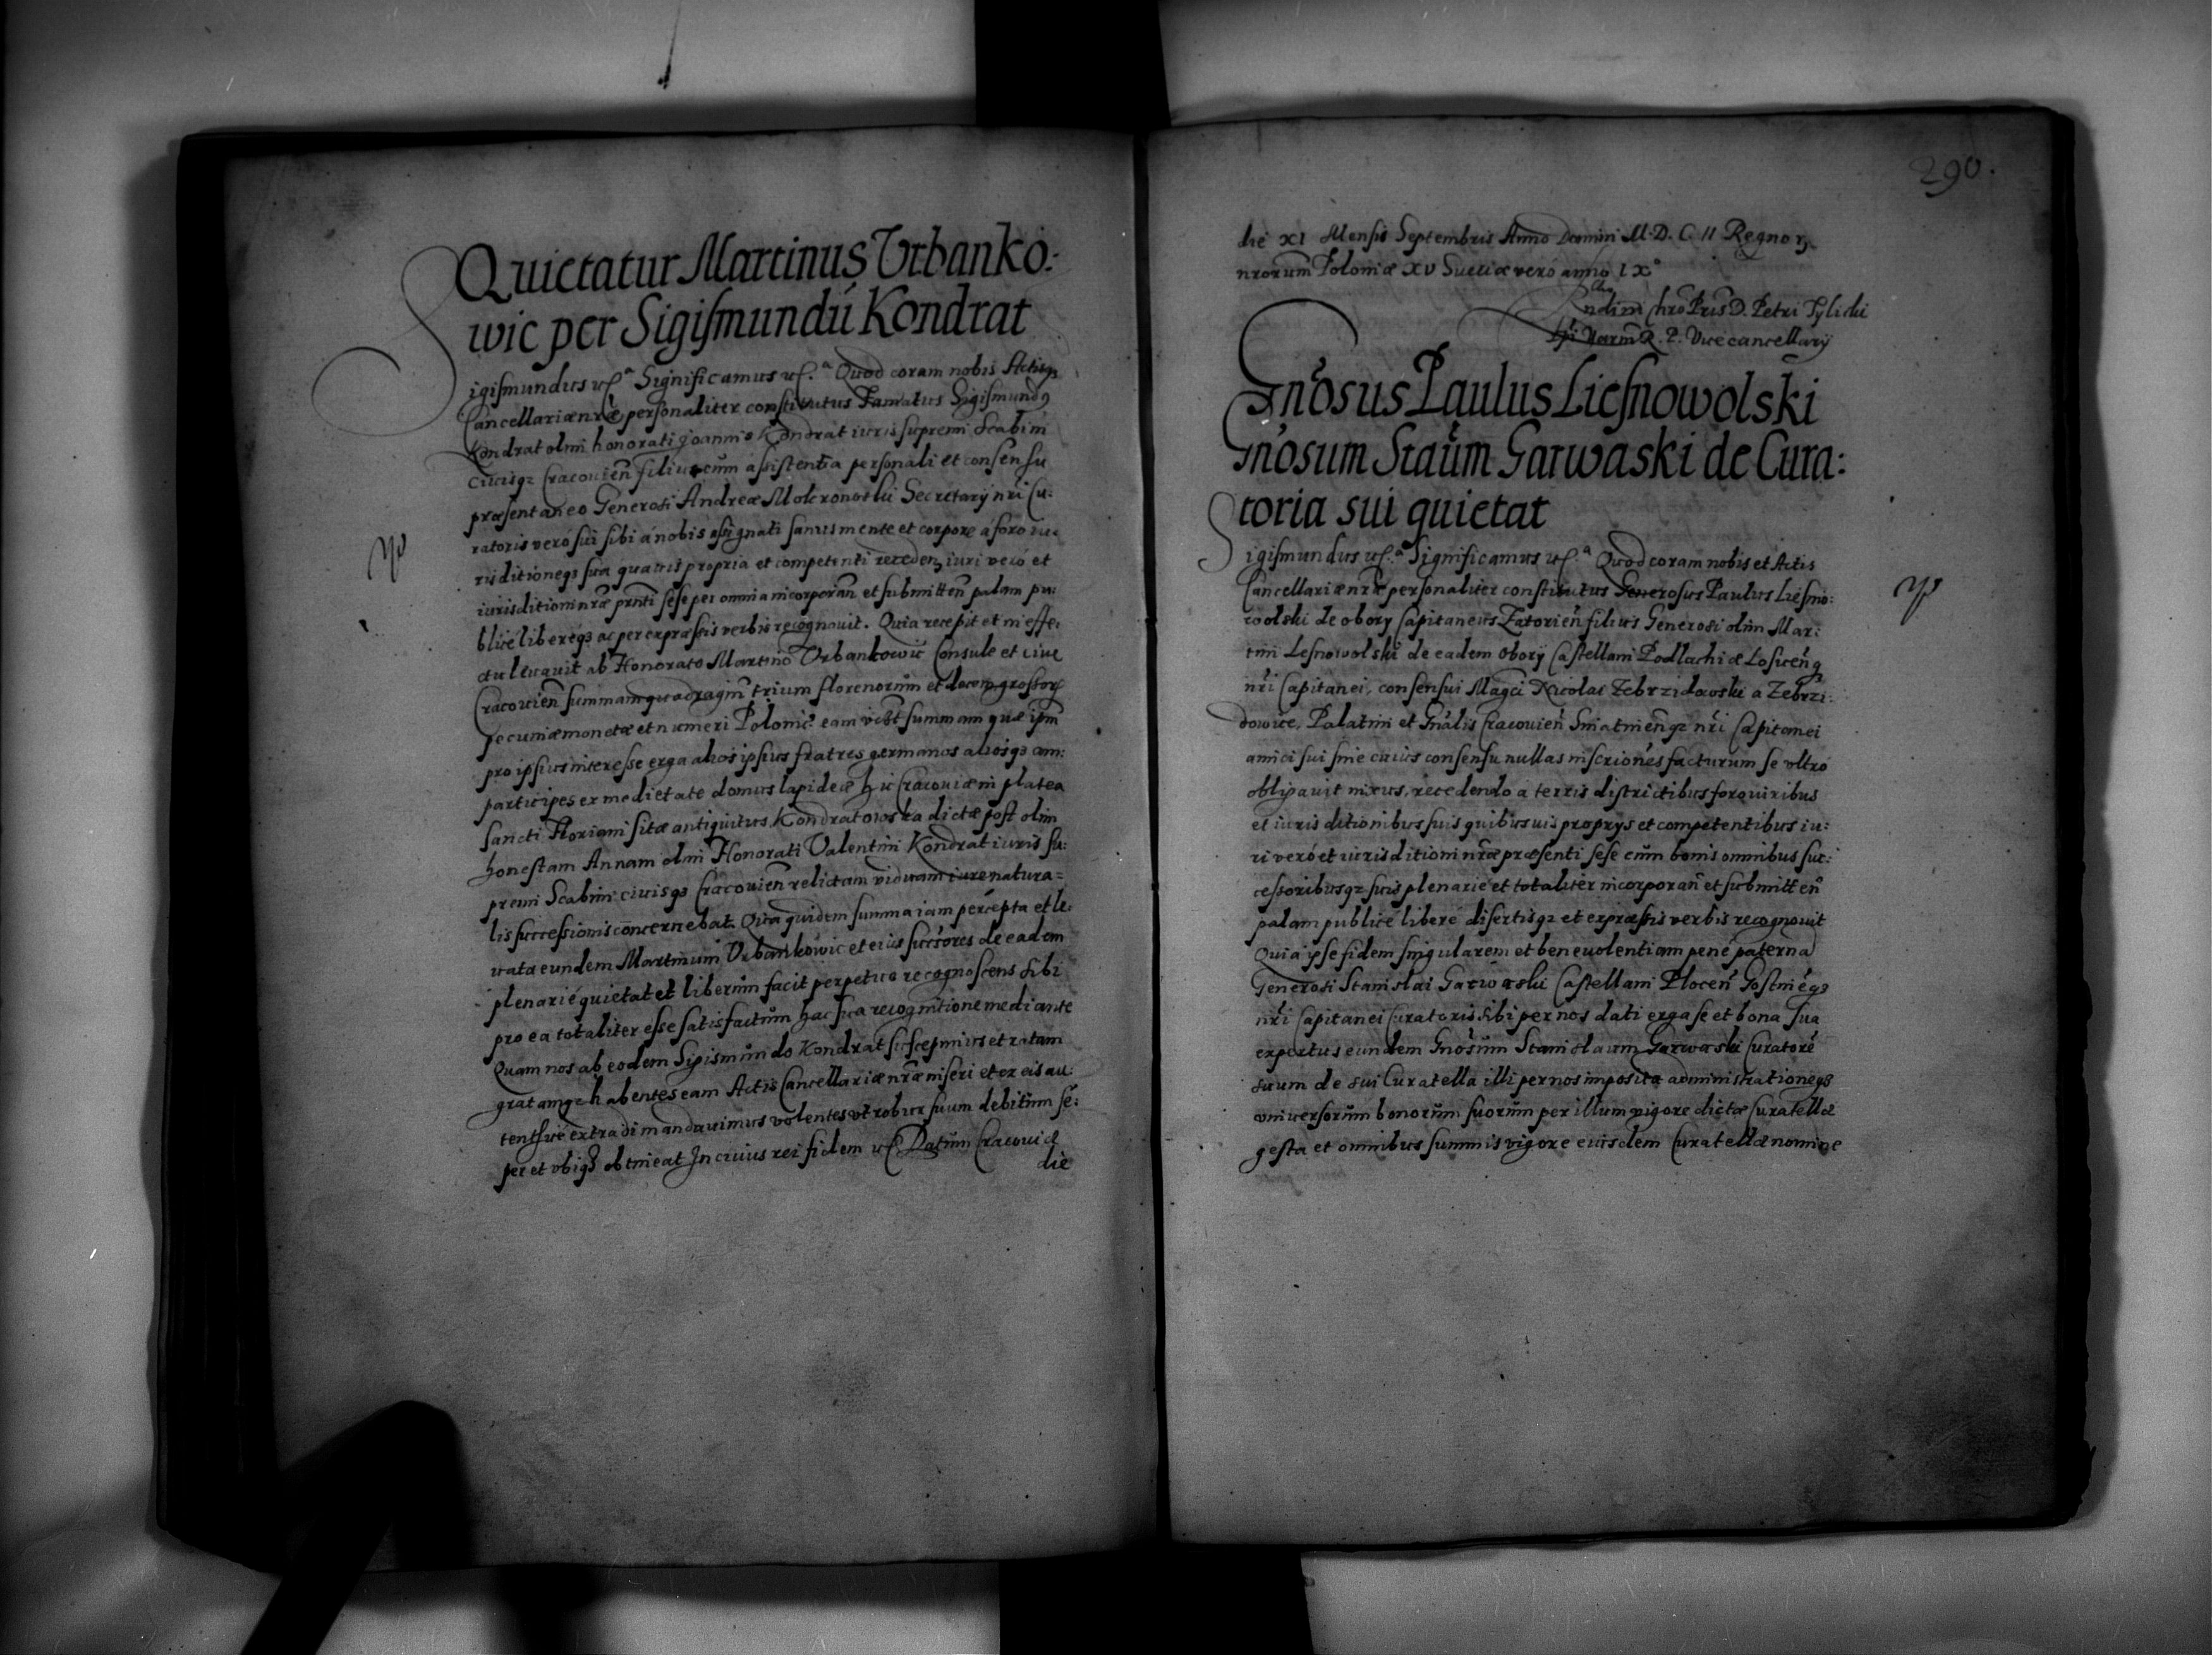 Quietatur Martinus Vrbanko:
wic per Sigismundú Kondrat
Sigismundus etc.ª Significamus etc.ª Quod coram nobis Actisq3
Cancellariæ nr̃æ personaliter constitutus Famatus Sigismund9
Kondrat olim honorati Joannis Kondrat iuris supremi Scabini
Ciuisq3 Cracouien̄ filius cum assistentia personali et consensu
præsentaneo Generosi Andreæ Mokronoski Secretarij nr̃i Cu:
ratoris veró sui sibi á nobis assignati sanus mente et corpore á foro iu:
risditioneq3 sua quauis propria et competenti receden̄ iuri veró et
iurisditioni nr̃æ prn̄ti sese per omnia incorporan̄ et submitten̄ palam pu:
blicé liberéq3 ac per expræssis verbis recognouit. Quia recepit et in effe:
ctu leuauit ab Honorato Martino Vrbankowic Consule et ciue
Cracouien̄ summam quadragin̄ trium florenorum et decem grossorȝ
pecuniæ monetæ et numeri Polonic̃: eam vidȝt summam quæ ipm̄
pro ipsius interesse erga alios ipsius fratres germanos aliosq3 com:
participes ex medietate domus lapideæ hic Cracouiæ in platea
Sancti Floriani sitæ antiquitus Kondratowska dictæ post olim
honestam Annam olim Honorati Valentini Kondrat iuris su:
premi Scabini ciuisq3 Cracouien̄ relictam viduam iure natura=
lis successionis concernebat. Qua quidem summa iam percepta et le:
uata eundem Martinum Vrbankowic et eius succ̃ores de eadem
plenarié quietat et liberum facit perpetuo recognoscens sibi
pro ea totaliter esse satisfactum hac sua recognitione mediante
Quam nos ab eodem Sigismundo Kondrat suscepimus et ratam
gratamq3 habentes eam Actis Cancellariæ nr̃æ inseri et ex eis au:
tenticé extradi mandauimus volentes vt robur suum debitum se:
per et vbiq3 obtineat In cuius rei fidem etc Datum Cracouiæ
die
290.
die XI Mensis Septembris Anno Domini M.D.C.II Regnorȝ
nrorum Poloniæ XV Sueciæ veró anno IX°
Rn̄di in Chrō Prīs D. Petri Tylicki
Ep̄i Varm̄ R. P. Vicecancellarij
Gnósus Paulus Liesnowolski
Gnósum Staūm Garwaski de Cura:
toria sui quietat
Sigismundus etc.ª Significamus etc.ª Quod coram nobis et Actis
Cancellariæ nr̃æ personaliter constitutus Generosus Paulus Liesno:
wolski de obory Capitaneus Zatorien̄ filius Generosi olim Mar:
tini Lesnowolski de eadem Obory Castellani Podlachiæ Losicen̄q3
nr̃i Capitanei, consensui Magc̃i Nicolai Zebrzidowski a Zebrzi:
dowice, Palatini et Gnãlis Cracouien̄ Sniatinen̄q3 nr̃i Capitanei
amici sui sine cuius consensu nullas inscriones facturum se vltró
obligauit nixus, recedendo a terris districtibus foro viribus
et iurisditionibus suis quibusuis proprijs et competentibus iu:
ri veró et iurisditioni nr̃æ præsenti sese cum bonis omnibus suc:
cessoribusq3 suis plenarie et totaliter incorporan̄ et submitten̄
palam publicé liberé disertisq3 et expræssis verbis recognouit
Quia ipse fidem singularem et beneuolentiam pené paterna
Generosi Stanislai Garwaski Castellani Plocen̄ Gostinen̄q3
nr̃i Capitanei Curatoris sibi per nos dati erga se et bona sua
expertus eundem Gnósum Stanislaum Garwaski Curatoré
suum de sui Curatella illi per nos imposita administrationeq3
vniuersorum bonorum suorum per illum vigore dictæ Curatellæ
gesta et omnibus summis vigore eiusdem Curatellæ nomine